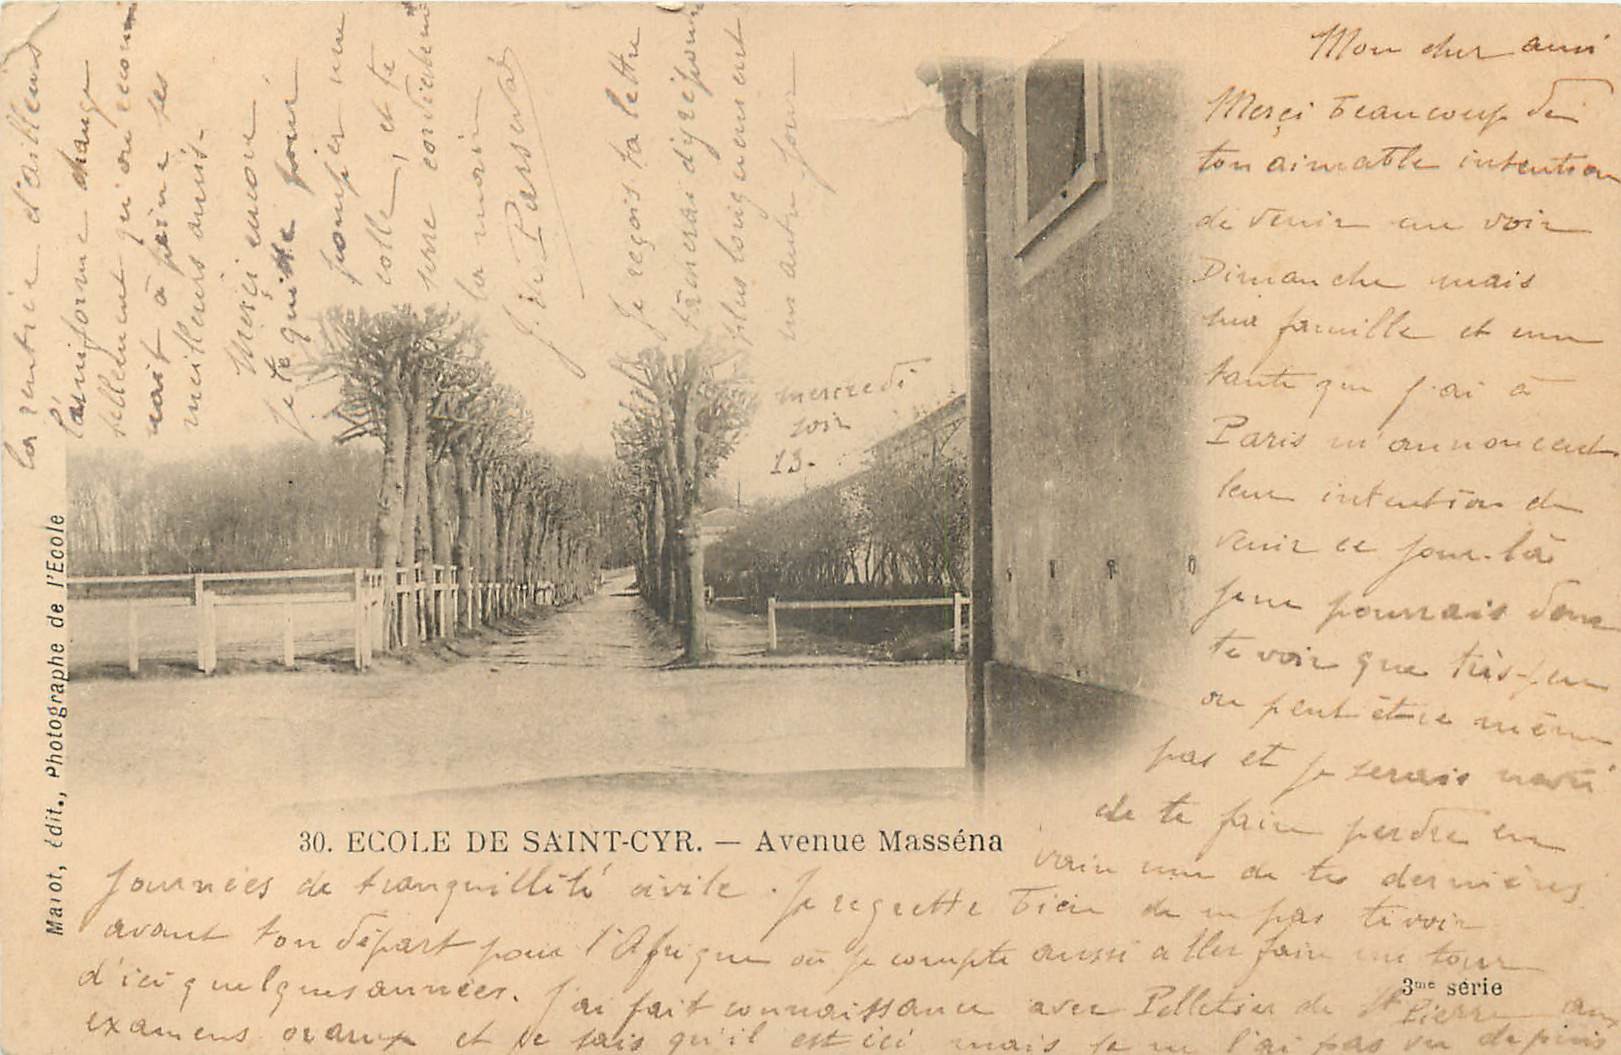 Mon cher ami
Merci beaucoup de
ton aimable intention
de venir me voir
Dimanche mais
ma famille et une
tante que j'ai à
Paris m'annoncent
leur intention de
venir ce jour-là
je ne pourrais donc
te voir que très-peu
ou peut-être même
pas et je serais navré
de te faire perdre en
vain une de tes dernières
journées de tranquillité civile. Je regrette bien de ne pas te voir
avant ton départ pour l'Afrique où je compte aussi aller faire un tour
d'ici quelques années. J'ai fait connaissance avec Pelletier de St Pierre aux
examens oraux et je sais qu'il est ici mais je ne l'ai pas vu depuis
la rentrée d'ailleurs
l'uniforme change
tellement qu'on reconnait
à peine ses
meilleurs amis-
Merci encore
je te quitte pour
pomper une
colle, et te
serre cordialement
la main
J. de Parseval
Je reçois ta lettre
tâcherai d'y répondre
plus longuement
un autre jour
mercredi
soir
13-
30. ECOLE DE SAINT-CYR. — Avenue Masséna
3me série
Marot, édit., Photographe de l'Ecole